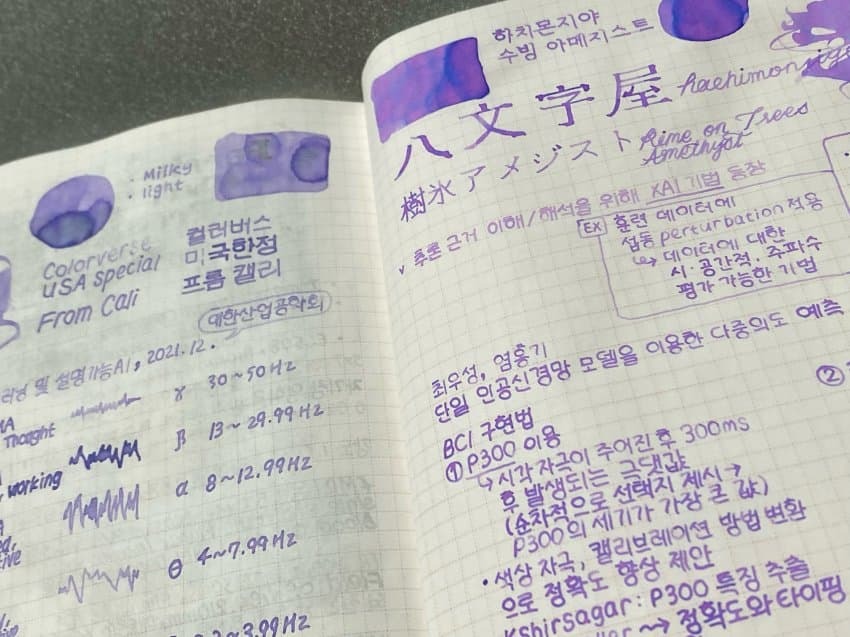 : Milky
. light
Colorverse
USA Special
From Cali
컬러버스
미국한정
프롬 캘리
대한산업공학회
및 설명가능AI, 2021.12.
Thought
γ 30~50Hz
working
β 13~29.99Hz
α 8~12.99Hz
θ 4~7.99Hz
3.99Hz
하치몬지야
수빙 아메지스트
八文字屋
hachimonjiya
樹氷アメジスト
Rime on Trees
Amethyst
v 추론 근거 이해/해석을 위해 XAI 기법 등장
Ex 훈련 데이터에
섭동 perturbation 적용
↳ 데이터에 대한
시·공간적·주파수
평가 가능한 기법
최우성, 염홍기
단일 인공신경망 모델을 이용한 다중의도 예측
BCI 구현법
① P300 이용
↳ 시각 자극이 주어진 후 300ms
후 발생되는 그 댓값
(순차적으로 선택지 제시 →
P300의 세기가 가장 큰 값)
• 색상 자극, 캘리브레이션 방법 변환
으로 정확도 향상 제안
Kshirsagar: P300 특징 추출
→ 정확도와 타이핑
②